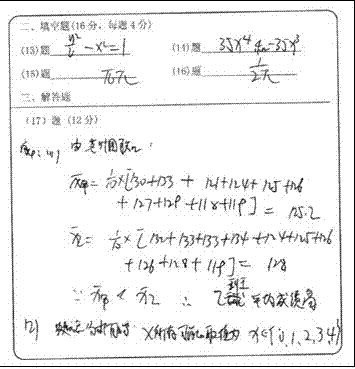 二、填空题(16分，每题4分)
(13)题 y²/2 - x² = 1 (14)题 35x⁴ -35x³
(15)题 √6π (16)题 1/2π
三、解答题
(17)题(12分)
由茎叶图
x̄甲= 1/10×[130+133 + 121+124+125+126
+ 127+129 +118+119] = 125.2
x̄乙= 1/10×[132+133+133+134 +124+125+126
+126+128+119] = 128
∵ x̄甲 < x̄乙 ∴ 乙 平均成绩高
(2) X所有可能取值为 x∈{0,1,2,3,4}